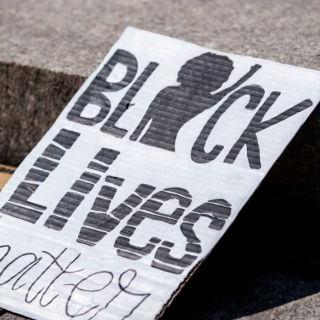 BLACK
LIVES
matter